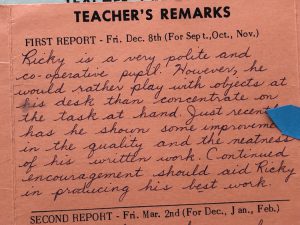 TEACHER'S REMARKS
FIRST REPORT - Fri. Dec. 8th (For Sept., Oct., Nov.)
Ricky is a very polite and
co-operative pupil. However, he
would rather play with objects at
his desk than concentrate on
the task at hand. Just recent
has he shown some improvemen
in the quality and the neatness
of his written work. Continued
encouragement should aid Ricky
in producing his best work.
SECOND REPORT - Fri. Mar. 2nd (For Dec., Jan., Feb.)